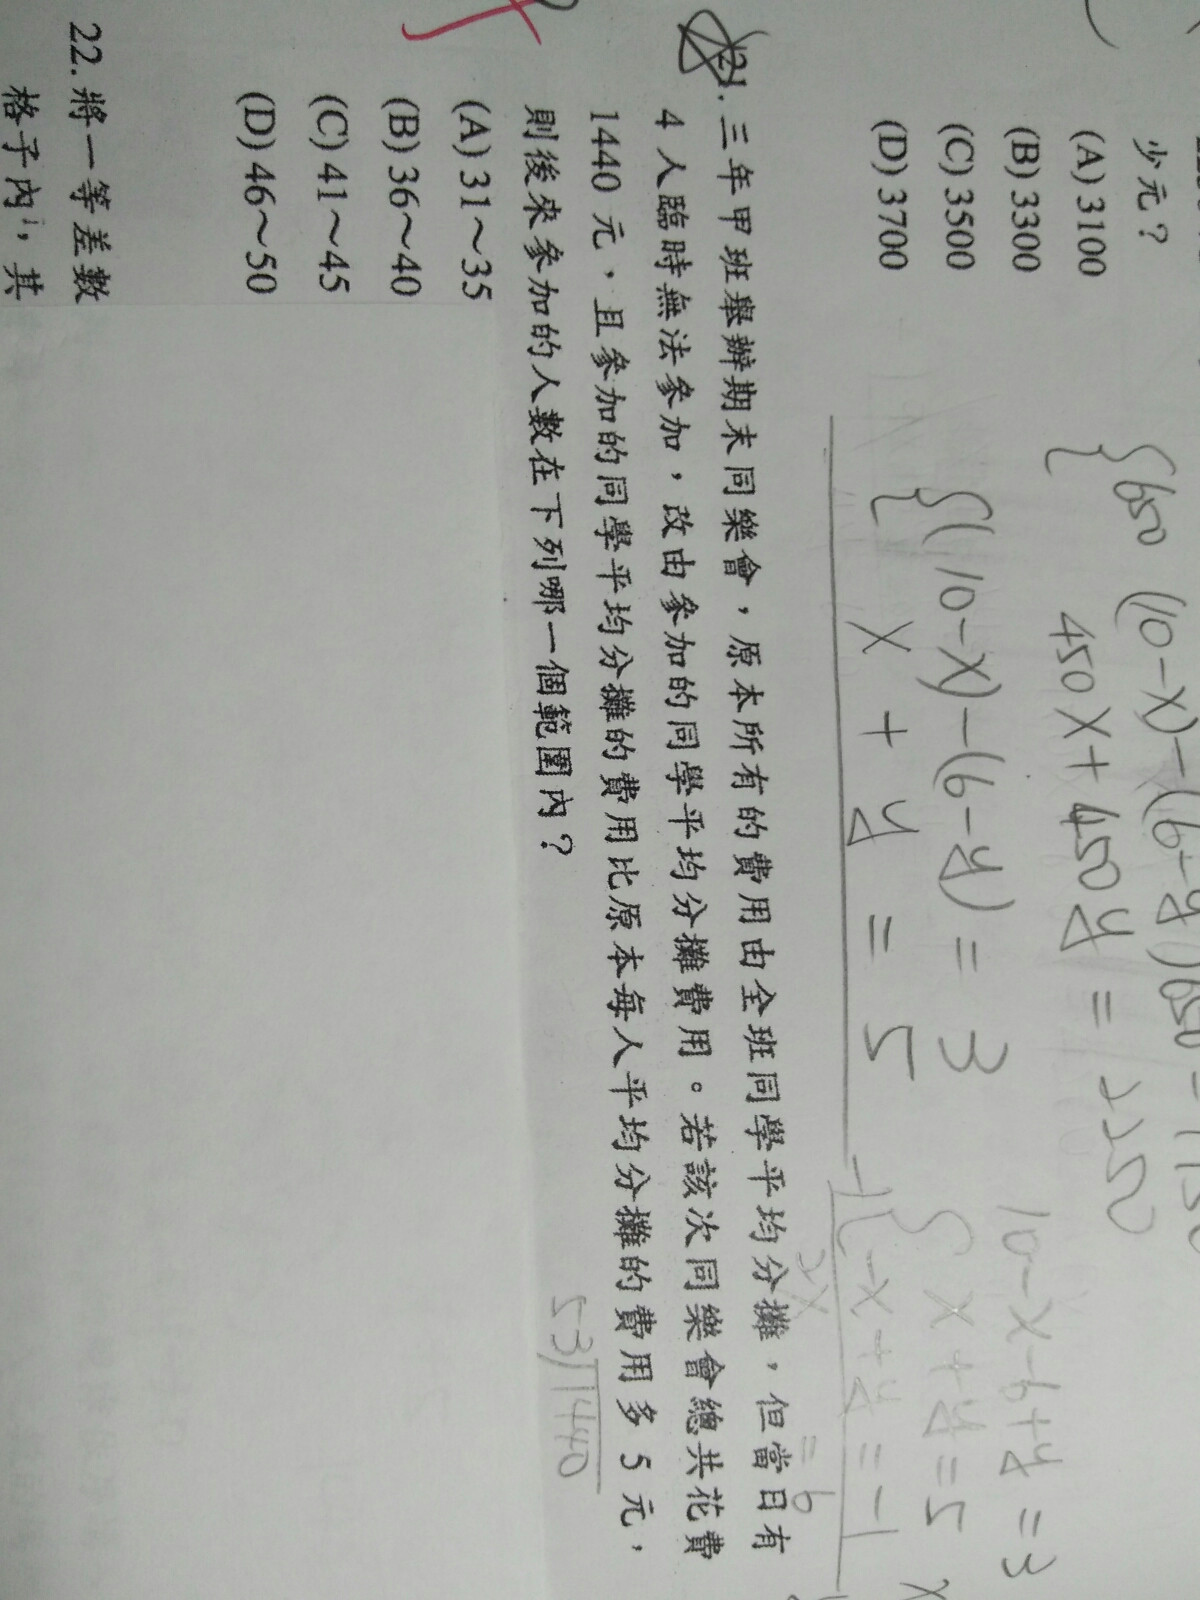 少元？
(A) 3100
(B) 3300
(C) 3500
(D) 3700
{650 (10-x)-(6-y)650
450x+450y = 2250
{(10-x)-(6-y) = 3
x + y = 5
10-x-6+y = 3
{x+y=5
-x+y=-1
2x = 6
21. 三年甲班舉辦期末同樂會，原本所有的費用由全班同學平均分攤，但當日有
4 人臨時無法參加，改由參加的同學平均分攤費用。若該次同樂會總共花費
1440 元，且參加的同學平均分攤的費用比原本每人平均分攤的費用多 5 元，
則後來參加的人數在下列哪一個範圍內？
53)1440
(A) 31～35
(B) 36～40
(C) 41～45
(D) 46～50
22. 將一等差數
格子內，其